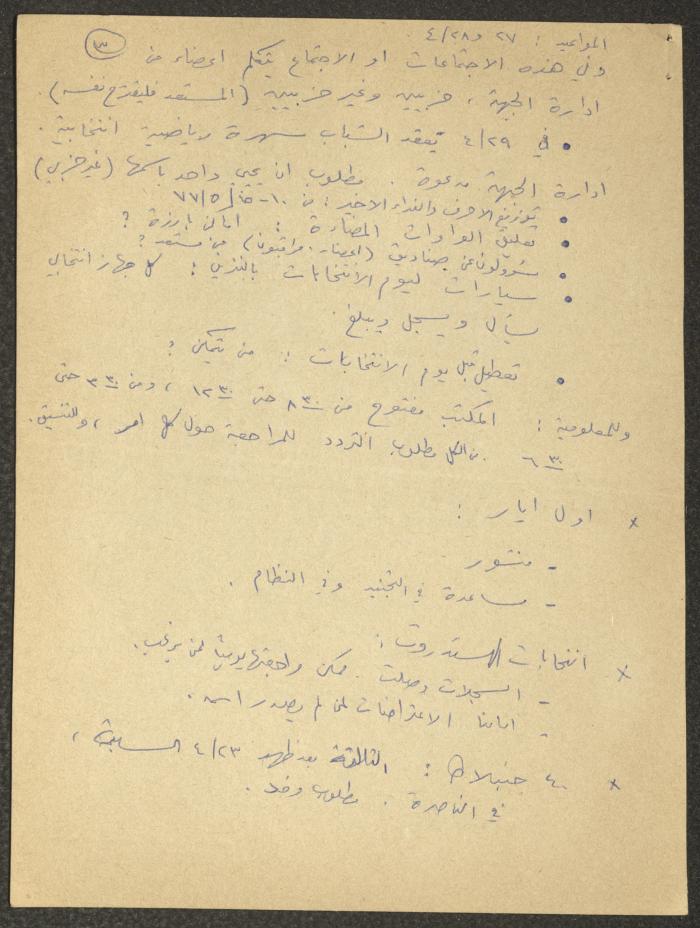 ٣
المواعيد : ٢٧ و ٤/٢٨
وفي هذه الاجتماعات او الاجتماع يتكلم اعضاء من
ادارة الجبهة ، حزبيين وغير حزبيين (المستعد فليقترح نفسه) .
• في ٤/٢٩ تعقد الشباب سهرة رياضية انتخابية .
ادارة الجبهة مدعوة . مطلوب ان يحيي واحد باسمها (غير حزبي)
• توزيع الاحرف والنداء الاخير : من ١٠ - ٧٧/٥/
• تعليق الواوات المضاءة : اماكن بارزة ؟
• مسؤولون عن صناديق (اعضاء . مراقبون) من مستعد ؟
• سيارات ليوم الانتخابات بالبنزين : كل جهاز انتخابي
يسأل ويسجل ويبلغ .
• تعطيل قبل يوم الانتخابات : من يتمكن ؟
وللمعلومية : المكتب مفتوح من ٨٣٠ حتى ١٢٣٠ ، ومن ٣٣٠ حتى
٦٣٠ . من الكل مطلوب التردد للمراجعة حول كل امر ، وللتنسيق .
× اول ايار :
- منشور
- مساعدة في التجنيد وفي النظام .
× انتخابات الهستدروت :
- السجلات وصلت . ممكن مراجعتها يوميا لمن يرغب .
- امامنا الاعتراضات لمن لم يصدر اسمه .
× جنبلاط : الثلاثة بعد ظهر ٤/٢٣ السبت ،
في الناصرة . مطلوب وفد .